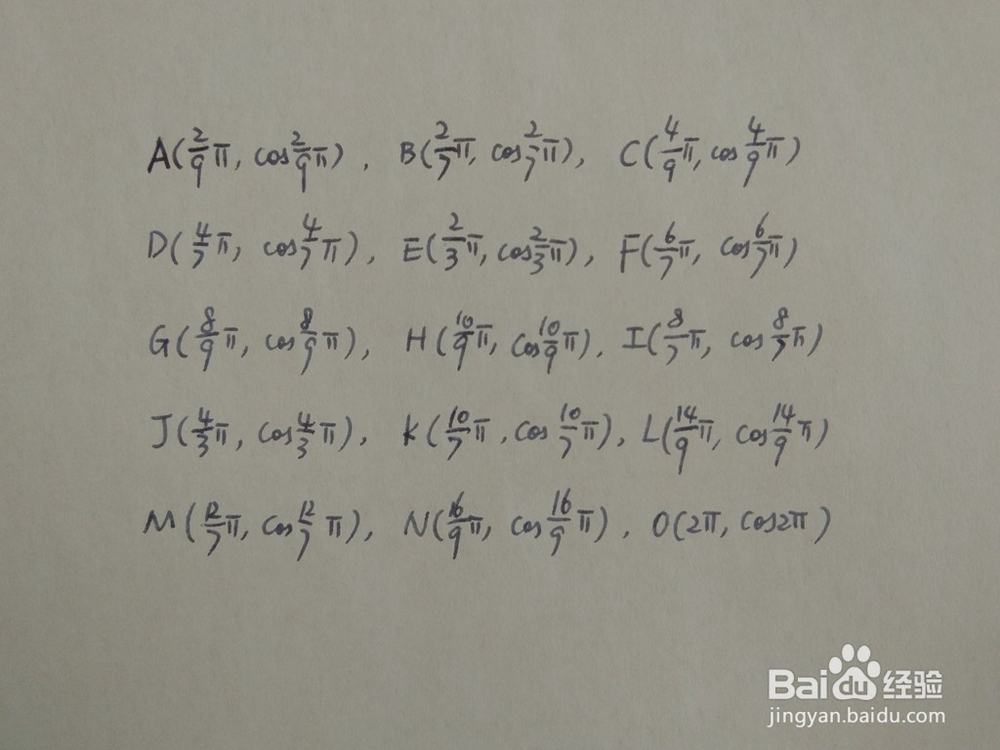 A(2/9π, cos2/9π), B(2/7π, cos2/7π), C(4/9π, cos4/9π)
D(4/7π, cos4/7π), E(2/3π, cos2/3π), F(6/7π, cos6/7π)
G(8/9π, cos8/9π), H(10/9π, cos10/9π), I(8/7π, cos8/7π)
J(4/3π, cos4/3π), K(10/7π, cos10/7π), L(14/9π, cos14/9π)
M(12/7π, cos12/7π), N(16/9π, cos16/9π), O(2π, cos2π)
Baidu经验
jingyan.baidu.com